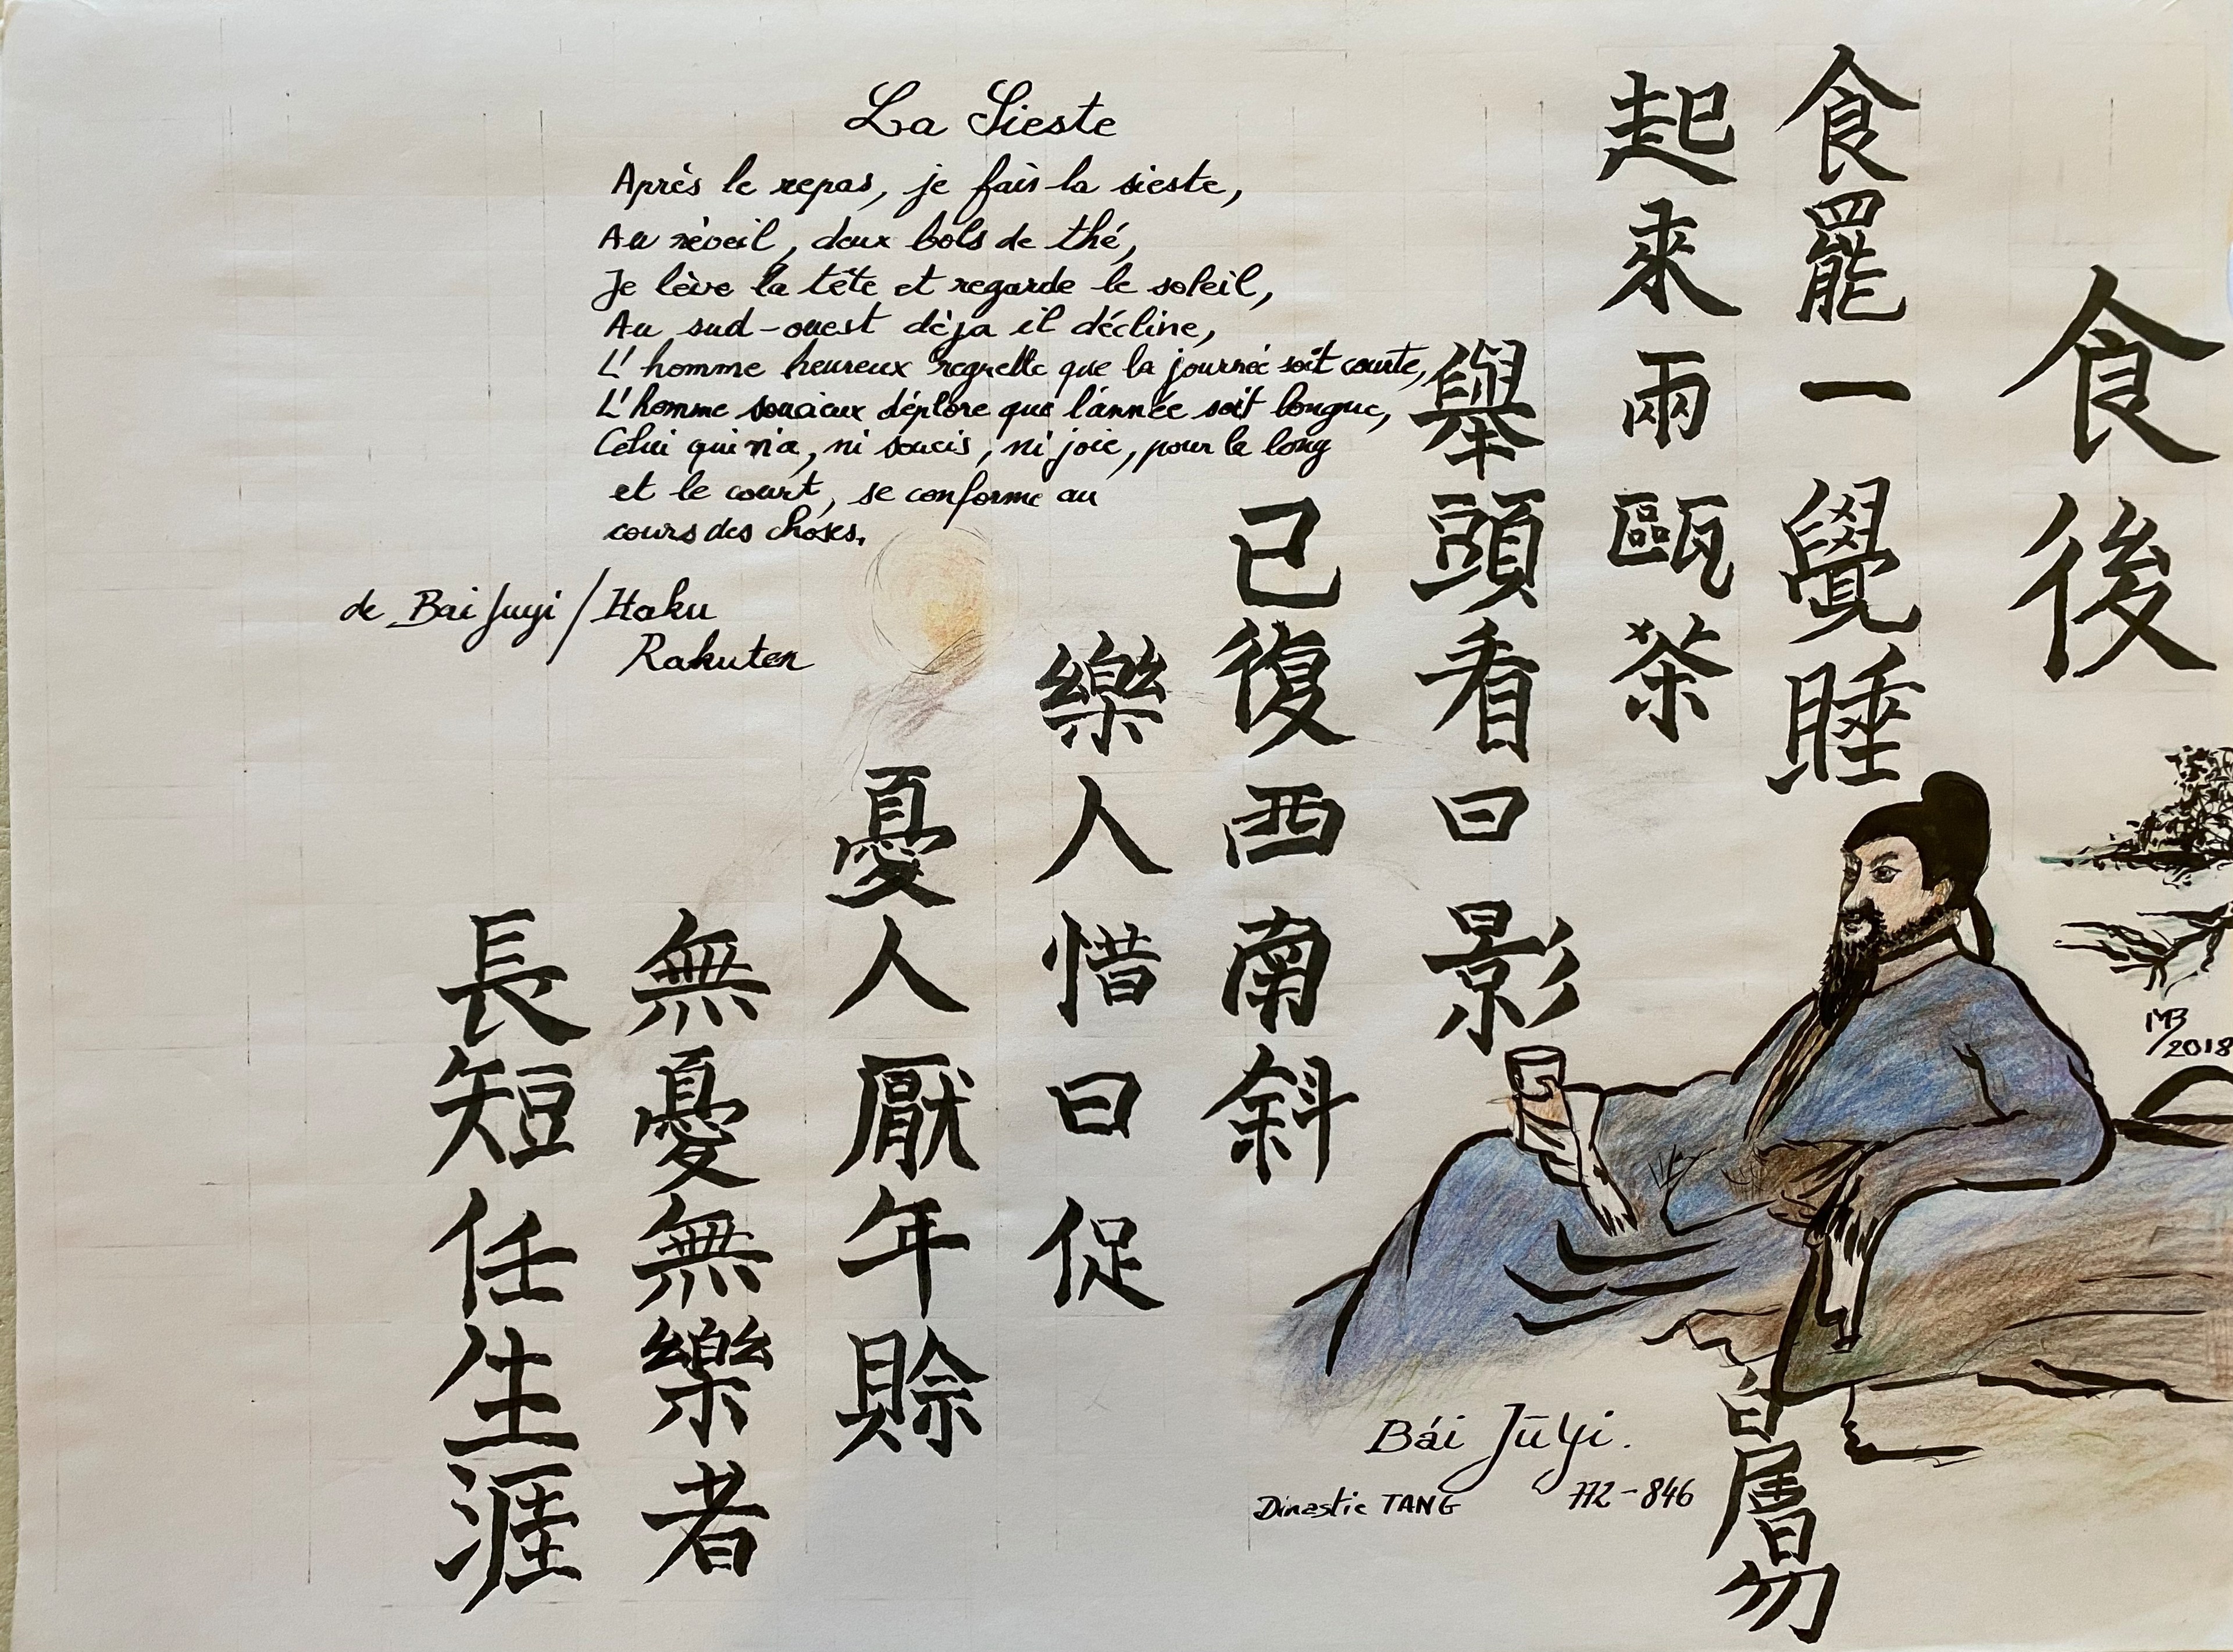 食後
食罷一覺睡
起來兩甌茶
舉頭看日影
已復西南斜
樂人惜日促
憂人厭年賒
無憂無樂者
長短任生涯
La Sieste
Après le repas, je fais la sieste,
Au réveil, deux bols de thé,
Je lève la tête et regarde le soleil,
Au sud-ouest déja il décline,
L'homme heureux regrette que la journée soit courte,
L'homme soucieux déplore que l'année soit longue,
Celui qui n'a, ni soucis, ni joie, pour le long
et le court, se conforme au
cours des choses.
de Bai Juyi / Haku
Rakuten
MB
2018
Bái Jūyi.
Dinastie TANG 772-846
白居易